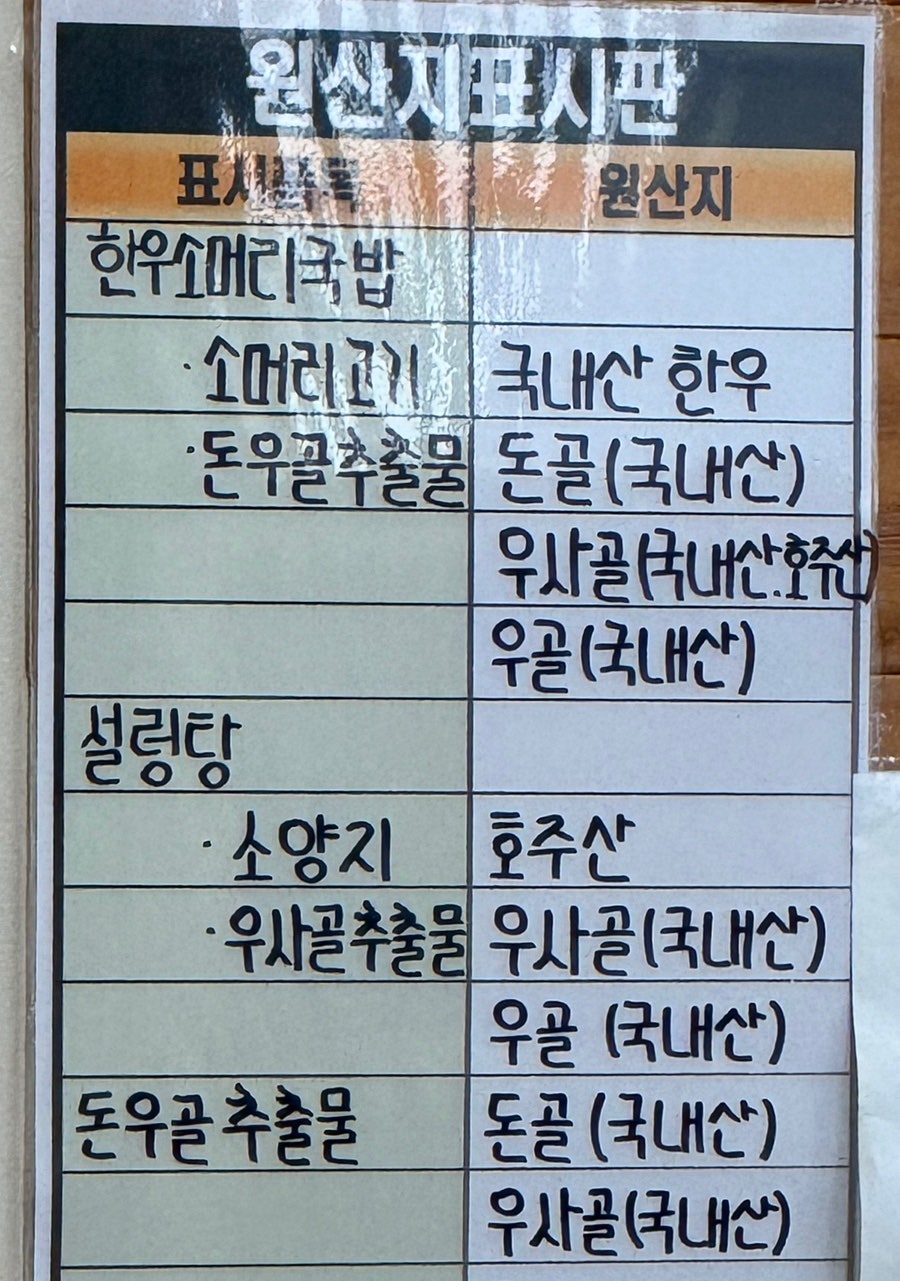 원산지표시판
원산지
한우소머리국밥
·소머리고기 국내산 한우
·돈우골추출물 돈골(국내산)
우사골(국내산.호주산)
우골(국내산)
설렁탕
·소양지 호주산
·우사골추출물 우사골(국내산)
우골 (국내산)
돈우골 추출물 돈골 (국내산)
우사골(국내산)